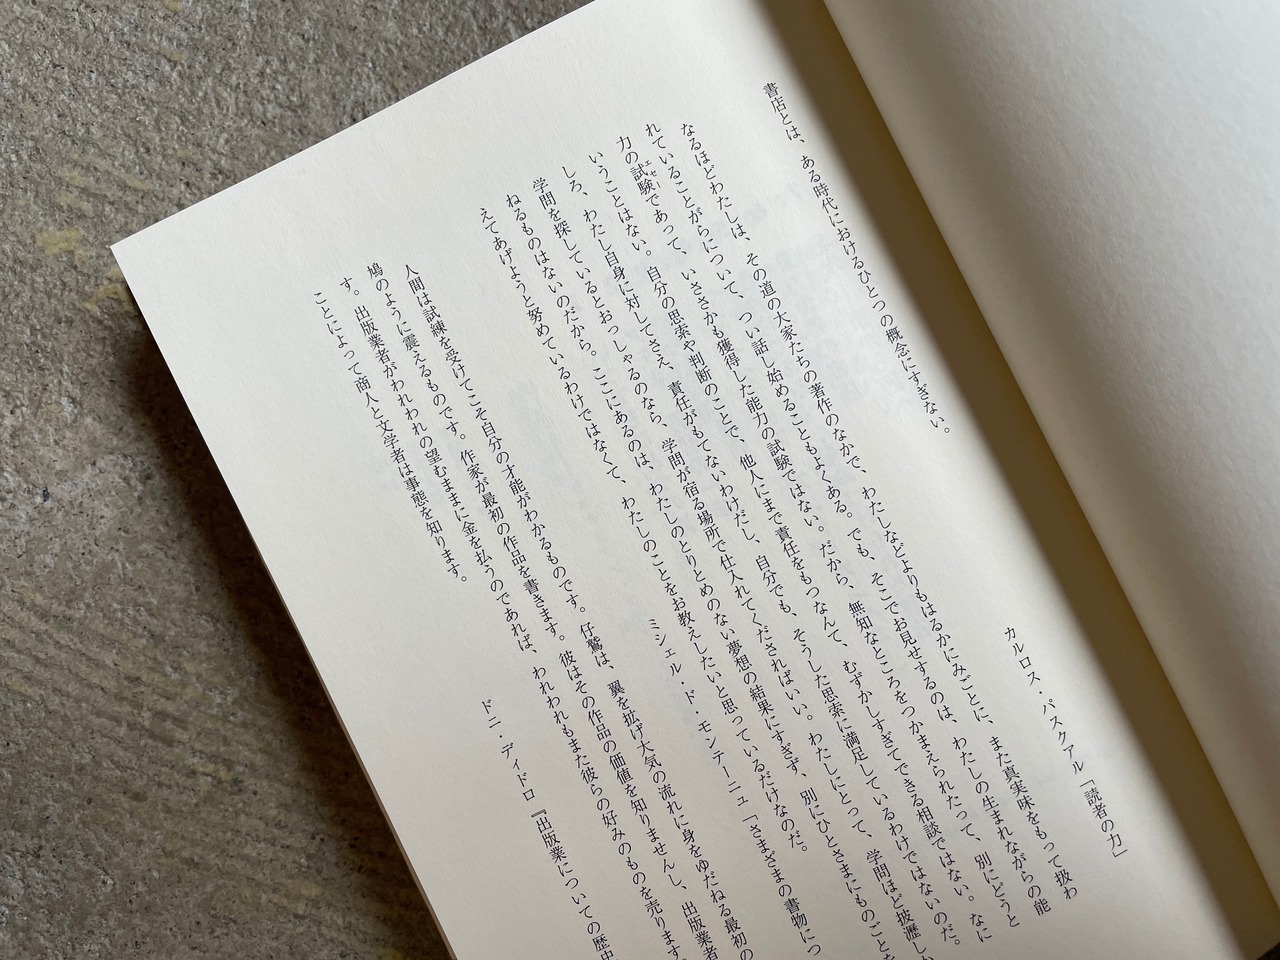 書店とは、ある時代におけるひとつの概念にすぎない。
カルロス・パスクアル「読者の力」
なるほどわたしは、その道の大家たちの著作のなかで、わたしなどよりもはるかにみごとに、また真実味をもって扱わ
れていることがらについて、つい話し始めることもよくある。でも、そこでお見せするのは、わたしの生まれながらの能
力の試験エセーであって、いささかも獲得した能力の試験ではない。だから、無知なところをつかまえられたって、別にどうと
いうことはない。自分の思索や判断のことで、他人にまで責任をもつなんて、むずかしすぎてできる相談ではない。なに
しろ、わたし自身に対してさえ、責任がもてないわけだし、自分でも、そうした思索に満足しているわけではないのだ。
学問を探しているとおっしゃるのなら、学問が宿る場所で仕入れてくださればいい。わたしにとって、学問ほど披瀝しか
ねるものはないのだから。ここにあるのは、わたしのとりとめのない夢想の結果にすぎず、別にひとさまにものごとを
えてあげようと努めているわけではなくて、わたしのことをお教えしたいと思っているだけなのだ。
ミシェル・ド・モンテーニュ「さまざまの書物につ
人間は試練を受けてこそ自分の才能がわかるものです。仔鷲は、翼を拡げ大気の流れに身をゆだねる最初の
鳩のように震えるものです。作家が最初の作品を書きます。彼はその作品の価値を知りませんし、出版業者
す。出版業者がわれわれの望むままに金を払うのであれば、われわれもまた彼らの好みのものを売ります。
ことによって商人と文学者は事態を知ります。
ドニ・ディドロ『出版業についての歴史